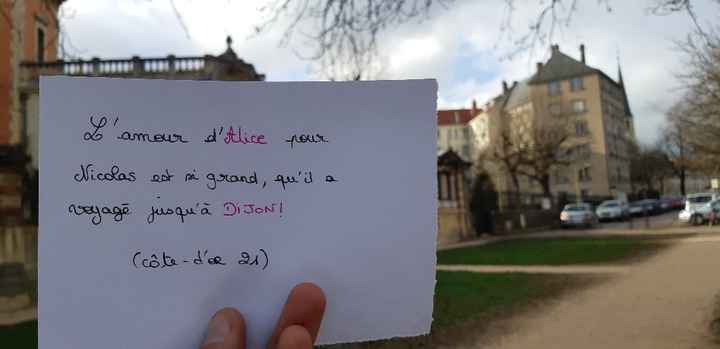 L'amour d'Alice pour
Nicolas est si grand, qu'il a
voyagé jusqu'à DIJON!
(côte-d'or 21)